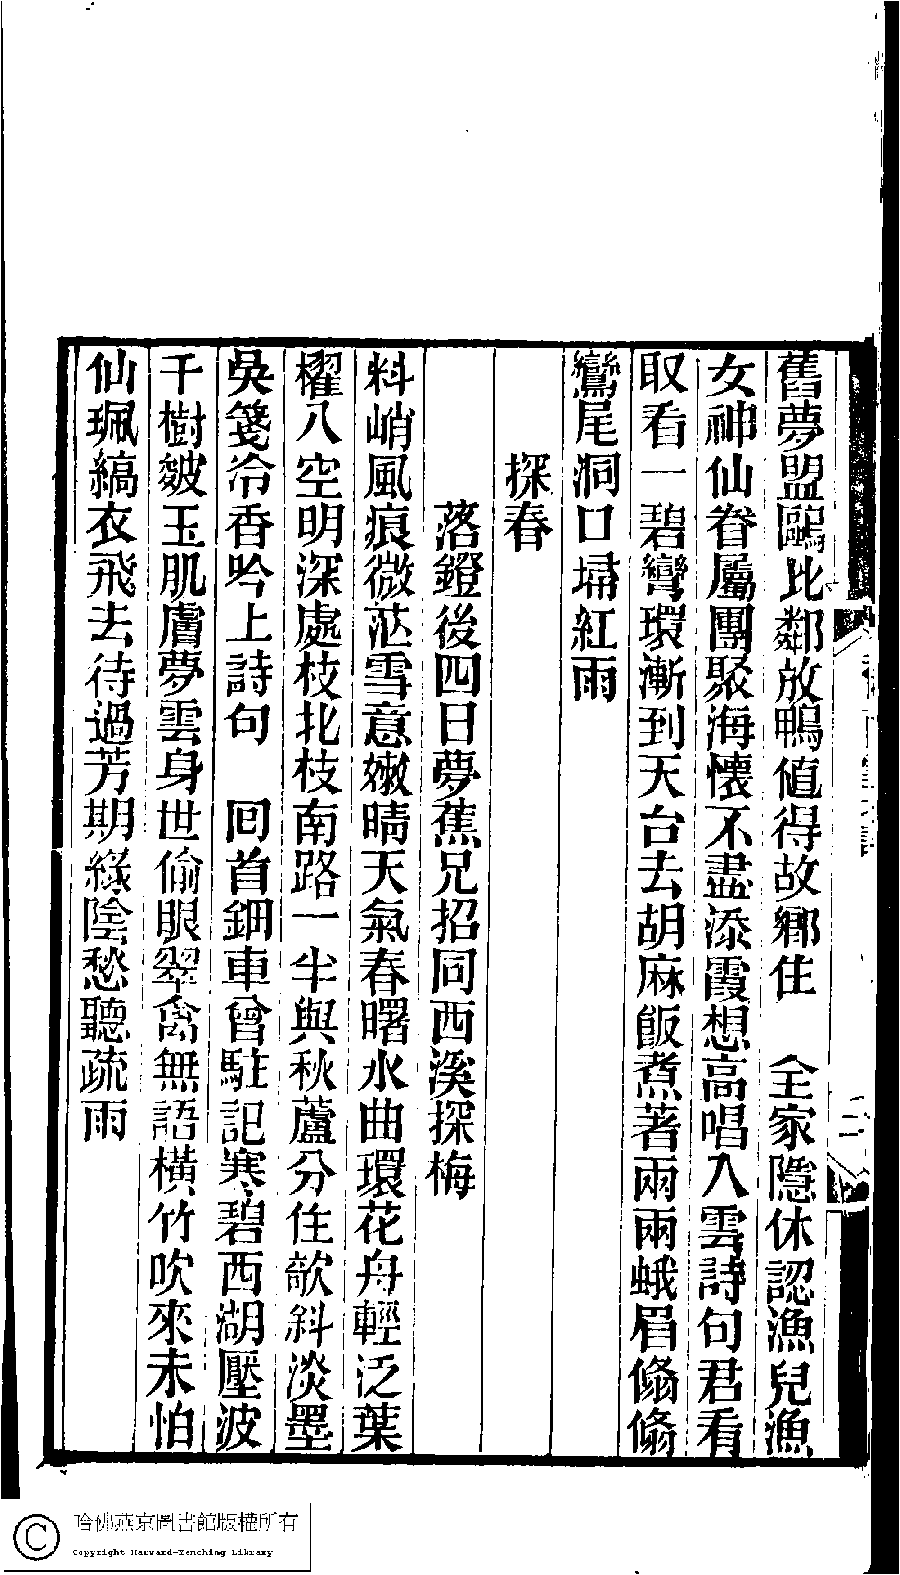 舊夢盟鷗比鄰放鴨値得故鄉住　全家隱休認漁兒漁
女神仙眷屬團聚海懷不盡添霞想高唱入雲詩句君看
取看一碧彎環漸到天台去胡麻飯煮著兩兩蛾眉翛翛
鸞尾洞口埽紅雨
探春
落鐙後四日夢蕉兄招同西溪探梅
料峭風痕微茫雪意嫩晴天氣春曙水曲環花舟輕泛葉
櫂入空明深處枝北枝南路一半與秋蘆分住欹斜淡墨
吳箋冷香吟上詩句　回首鈿車曾駐記寒碧西湖壓波
千樹皴玉肌膚夢雲身世偷眼翠禽無語橫竹吹來未怕
仙珮縞衣飛去待過芳期綠陰愁聽疏雨
二
哈佛燕京圖書館版權所有
Copyright Harvard-Yenching Library